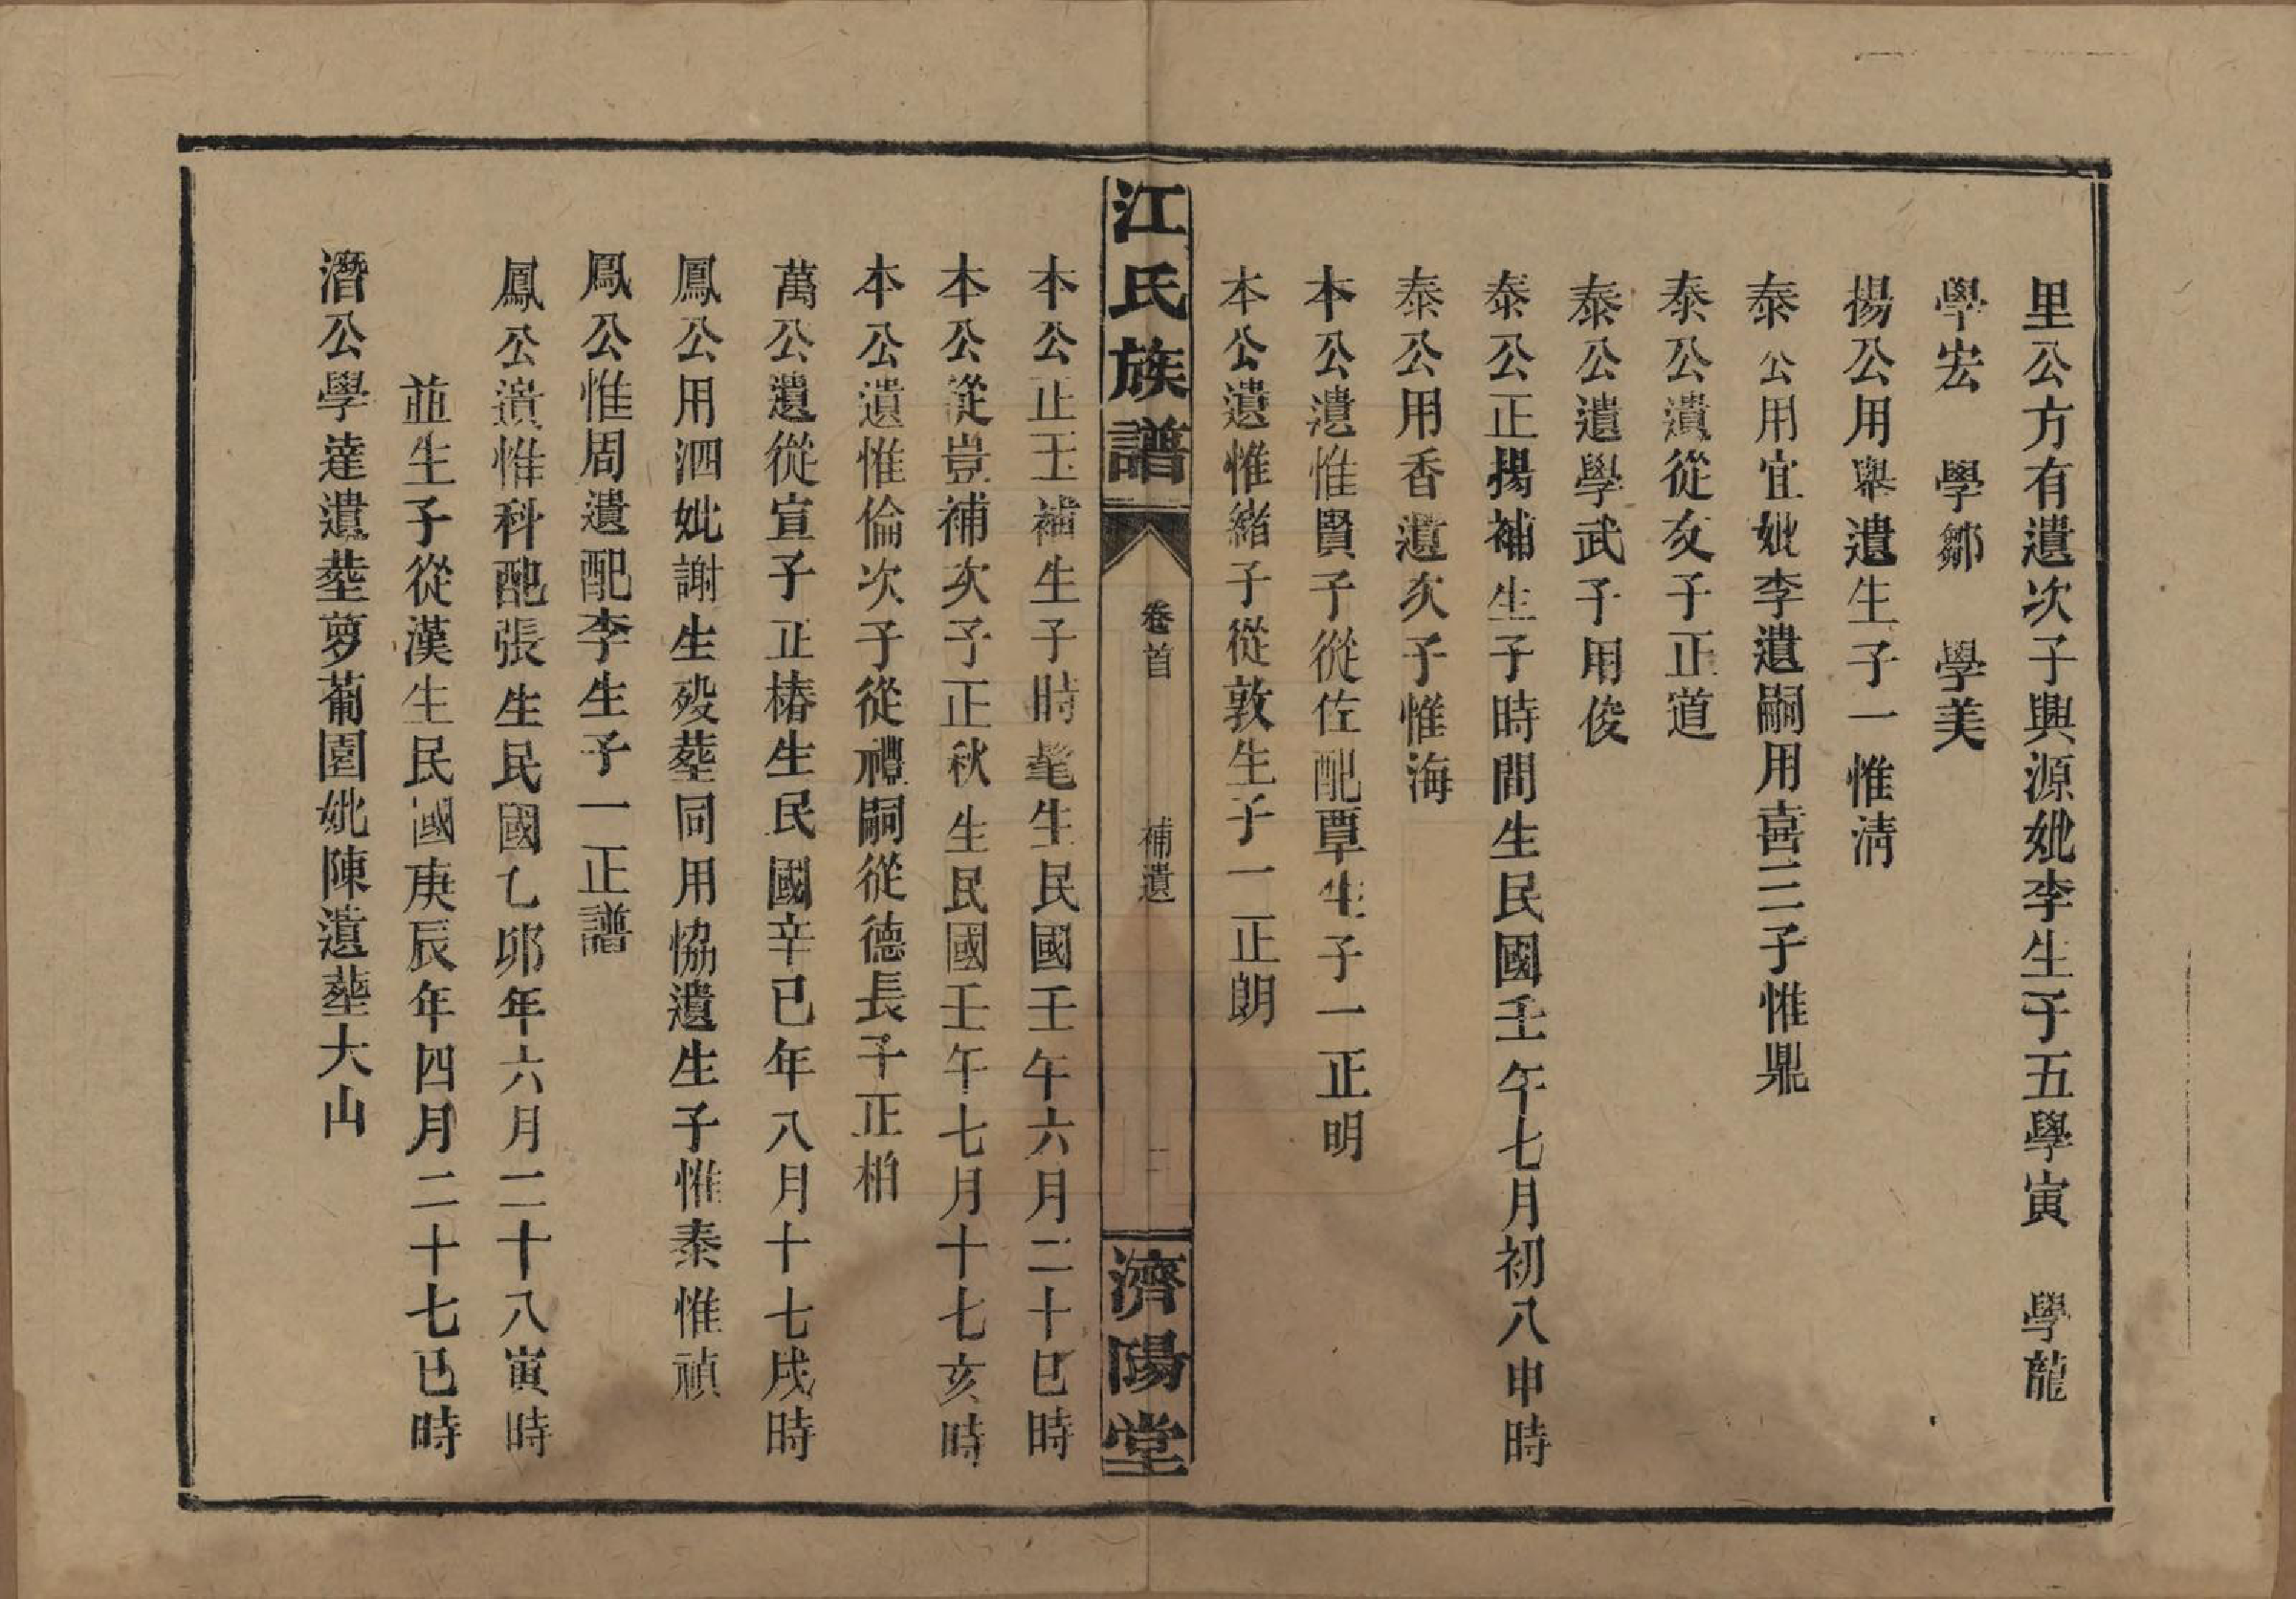 里公方有遺次子興源妣李生子五學寅　學龍
學宏　學鄒　學美
揚公用舉遺生子一惟清
泰公用宜妣李遺嗣用喜三子惟鼎
泰公遺從友子正道
泰公遺學武子用俊
泰公正揚補生子時間生民國壬午七月初八申時
泰公用香遺次子惟海
本公遺惟賢子從佐配覃生子一正明
本公遺惟緒子從敦生子一正朗
江氏族譜
卷首
補遺
濟陽堂
本公正玉補生子時髦生民國壬午六月二十巳時
本公從豈補次子正秋生民國壬午七月十七亥時
本公遺惟倫次子從禮嗣從德長子正柏
萬公遺從宣子正椿生民國辛巳年八月十七戌時
鳳公用泗妣謝生歿塟同用恊遺生子惟秦惟禎
鳳公惟周遺配李生子一正譜
鳳公遺惟科配張生民國乙卯年六月二十八寅時
並生子從漢生民國庚辰年四月二十七巳時
潛公學達遺塟蘿蔔園妣陳遺塟大山